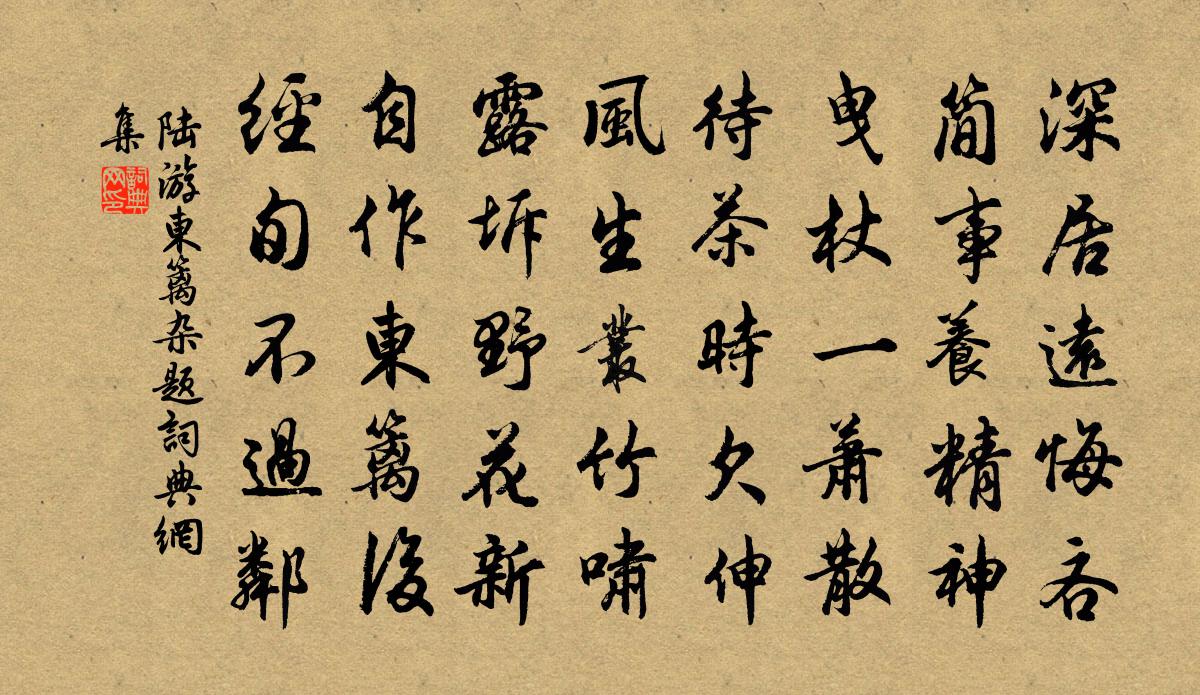 深居遠悔吝
簡事養精神
曳杖一蕭散
待茶時欠伸
風生叢竹嘯
露坼野花新
自作東籬後
經旬不過鄰
陸游東籬杂题詞典網
集
詞典
网印